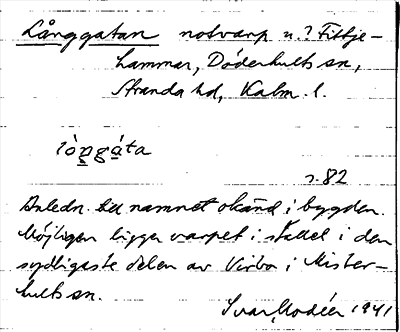 Långgatan notvarp n.? Fittje-
hammar, Döderhults sn,
Stranda hd, Kalm. l.
lòŋgáta
s. 82
Anledn. till namnet okänd i bygden.
Möjligen ligger varpet i stället i den
sydligaste delen av Virbo i Mister-
hults sn.
Ivar Modéer 1941